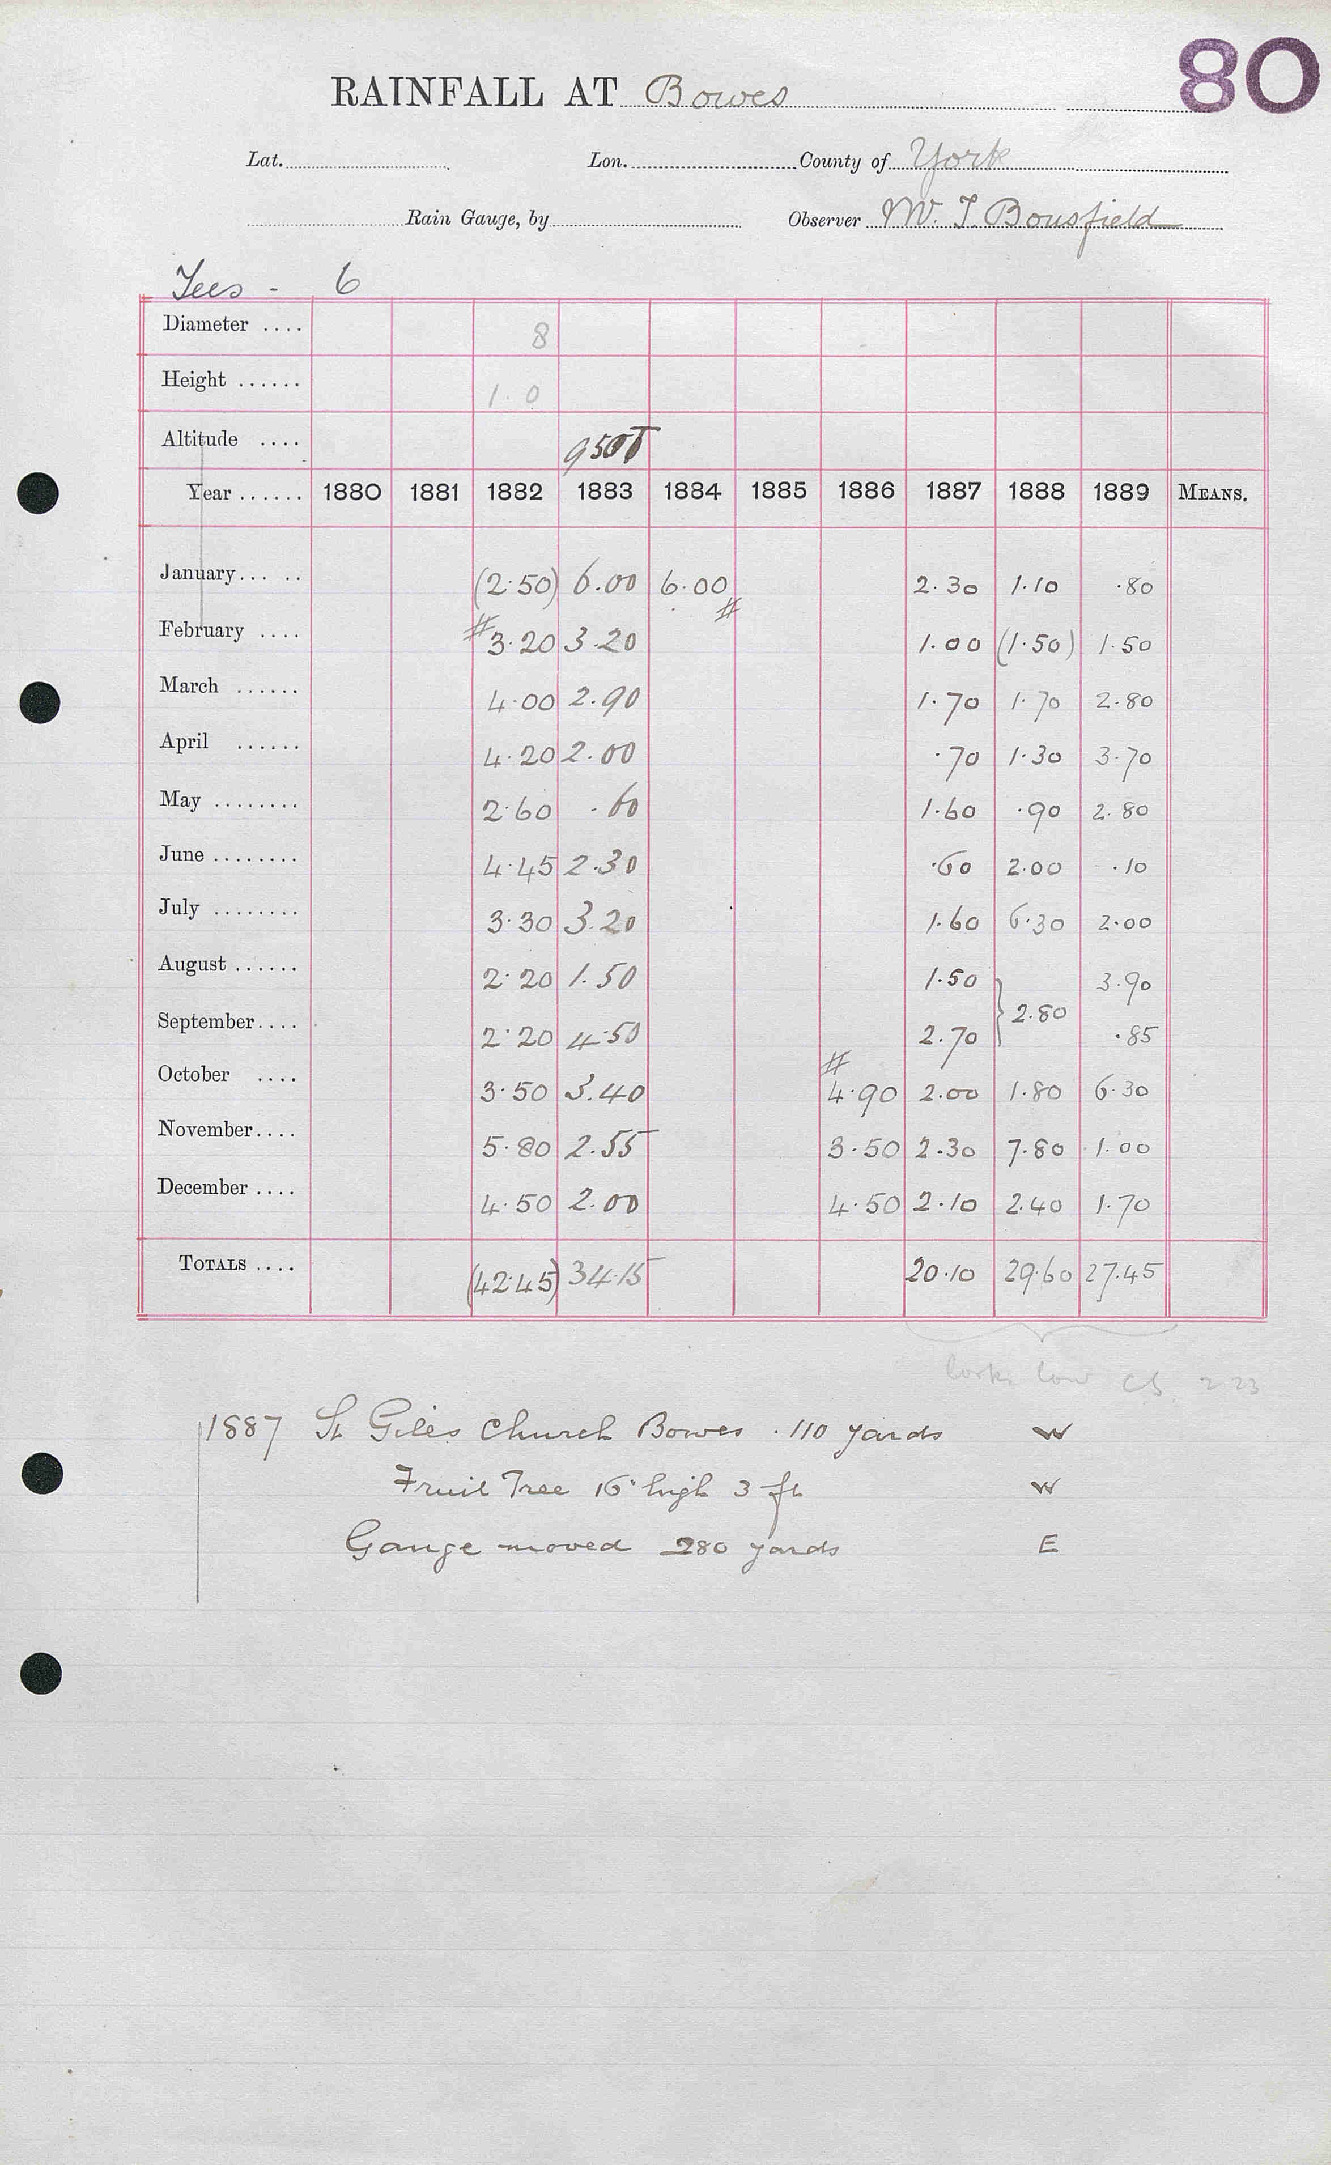 80
RAINFALL AT Bowes
Lat. Lon. County of York
Rain Gauge, by Observer W. T. Bousfield
Tees - 6
Diameter .... 8
Height ...... 1.0
Altitude .... 950T
Year ...... 1880 1881 1882 1883 1884 1885 1886 1887 1888 1889 MEANS.
January... .. (2.50) 6.00 6.00 2.30 1.10 .80
#
February .... # 3.20 3.20 1.00 (1.50) 1.50
March ...... 4.00 2.90 1.70 1.70 2.80
April ...... 4.20 2.00 .70 1.30 3.70
May ........ 2.60 .60 1.60 .90 2.80
June ........ 4.45 2.30 .60 2.00 .10
July ........ 3.30 3.20 1.60 6.30 2.00
August ...... 2.20 1.50 1.50 } 2.80 3.90
September.... 2.20 4.50 2.70 .85
#
October .... 3.50 3.40 4.90 2.00 1.80 6.30
November.... 5.80 2.55 3.50 2.30 7.80 1.00
December .... 4.50 2.00 4.50 2.10 2.40 1.70
TOTALS .... (42.45) 34.15 20.10 29.60 27.45
looks low CS 2.23
1887 St Giles Church Bowes . 110 yards W
Fruit Tree 16' high 3 ft W
Gauge moved 280 yards E